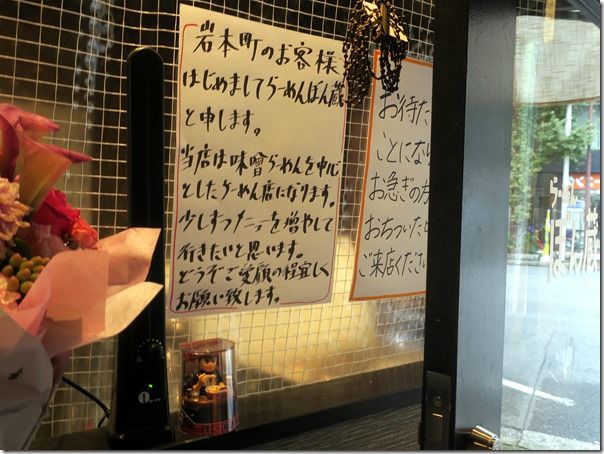 岩本町のお客様
はじめましてらーめんぽん蔵
と申します。
当店は味噌らーめんを中心
としたらーめん店になります。
少しずつメニューを増やして
行きたいと思います。
どうぞご愛顧の程宜しく
お願い致します。
お待た
ことになら
お急ぎの方
おちついた
ご来店ください